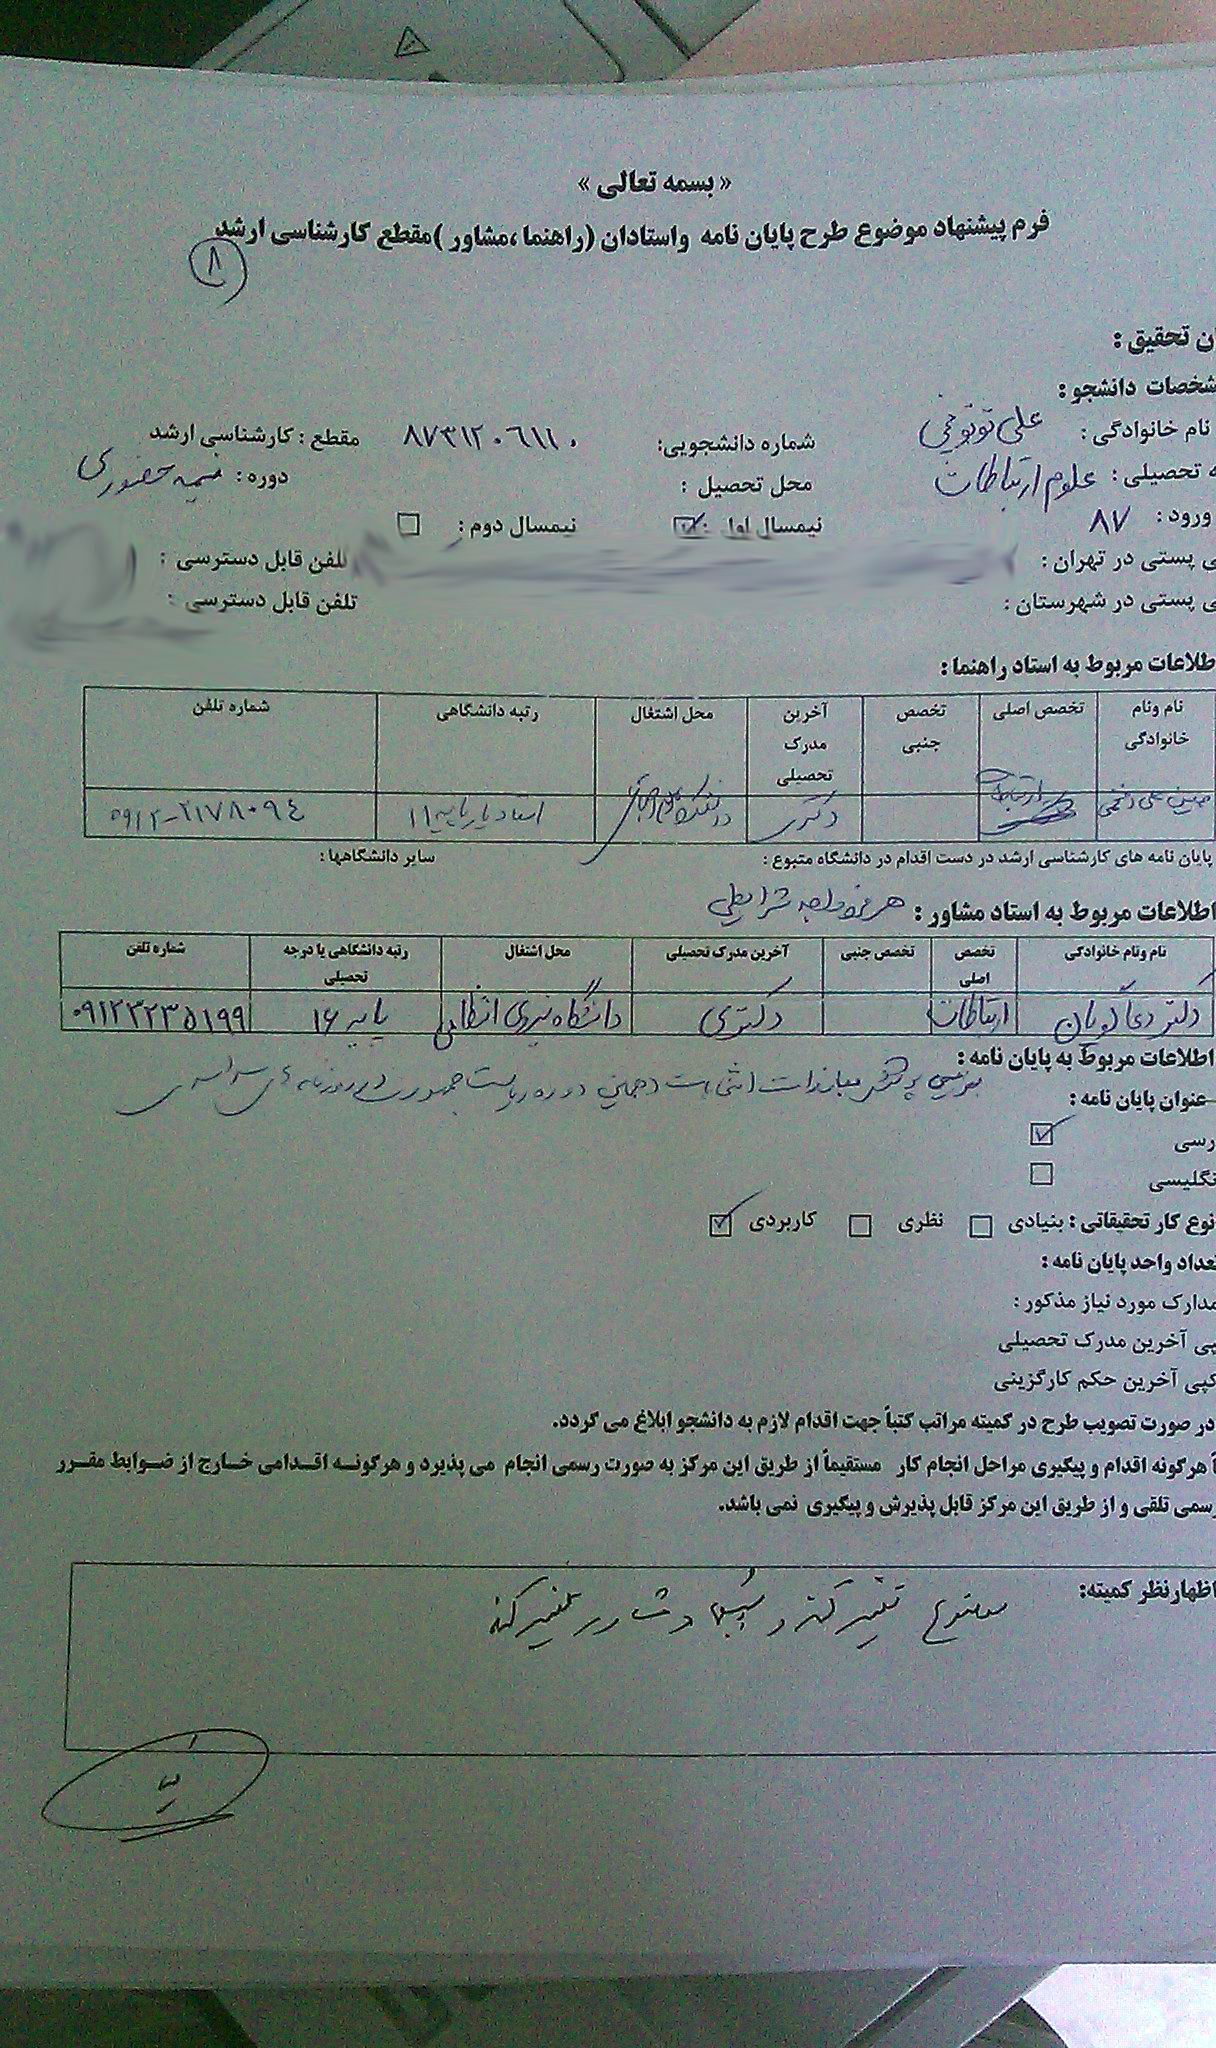 « بسمه تعالی »
فرم پیشنهاد موضوع طرح پایان نامه واستادان (راهنما ،مشاور )مقطع کارشناسی ارشد
۸
ن تحقیق :
شخصات دانشجو :
نام خانوادگی : علی شماره دانشجویی: ۸۷۳۱۲۰۶۱۱۰ مقطع : کارشناسی ارشد
ه تحصیلی : علوم ارتباطات محل تحصیل : دوره : نیمه حضوری
ورود : ۸۷ نیمسال اول : نیمسال دوم :
ی پستی در تهران : تلفن قابل دسترسی :
ی پستی در شهرستان : تلفن قابل دسترسی :
طلاعات مربوط به استاد راهنما :
نام ونام خانوادگی تخصص اصلی تخصص جنبی آخرین مدرک تحصیلی محل اشتغال رتبه دانشگاهی شماره تلفن
حسین علی ارتباطات دکتری استادیار پایه ۱۱ ۰۹۱۲-۲۱۷۸۰۹۴
پایان نامه های کارشناسی ارشد در دست اقدام در دانشگاه متبوع : سایر دانشگاهها :
اطلاعات مربوط به استاد مشاور : هر فرد واجد شرایطی
نام ونام خانوادگی تخصص اصلی تخصص جنبی آخرین مدرک تحصیلی محل اشتغال رتبه دانشگاهی یا درجه تحصیلی شماره تلفن
دکتر دعاگویان ارتباطات دکتری دانشگاه نیروی انتظامی پایه ۱۶ ۰۹۱۲۳۲۳۵۱۹۹
اطلاعات مربوط به پایان نامه :
عنوان پایان نامه : بررسی پوشش مبارزات انتخابات دهمین دوره ریاست جمهوری در روزنامه های سراسری
رسی
نگلیسی
نوع کار تحقیقاتی : بنیادی نظری کاربردی
تعداد واحد پایان نامه :
مدارک مورد نیاز مذکور :
کپی آخرین مدرک تحصیلی
کپی آخرین حکم کارگزینی
در صورت تصویب طرح در کمیته مراتب کتباً جهت اقدام لازم به دانشجو ابلاغ می گردد.
هرگونه اقدام و پیگیری مراحل انجام کار مستقیماً از طریق این مرکز به صورت رسمی انجام می پذیرد و هرگونه اقدامی خارج از ضوابط مقرر
رسمی تلقی و از طریق این مرکز قابل پذیرش و پیگیری نمی باشد.
اظهارنظر کمیته: موضوع تغییر کند و مشاور تغییر کند